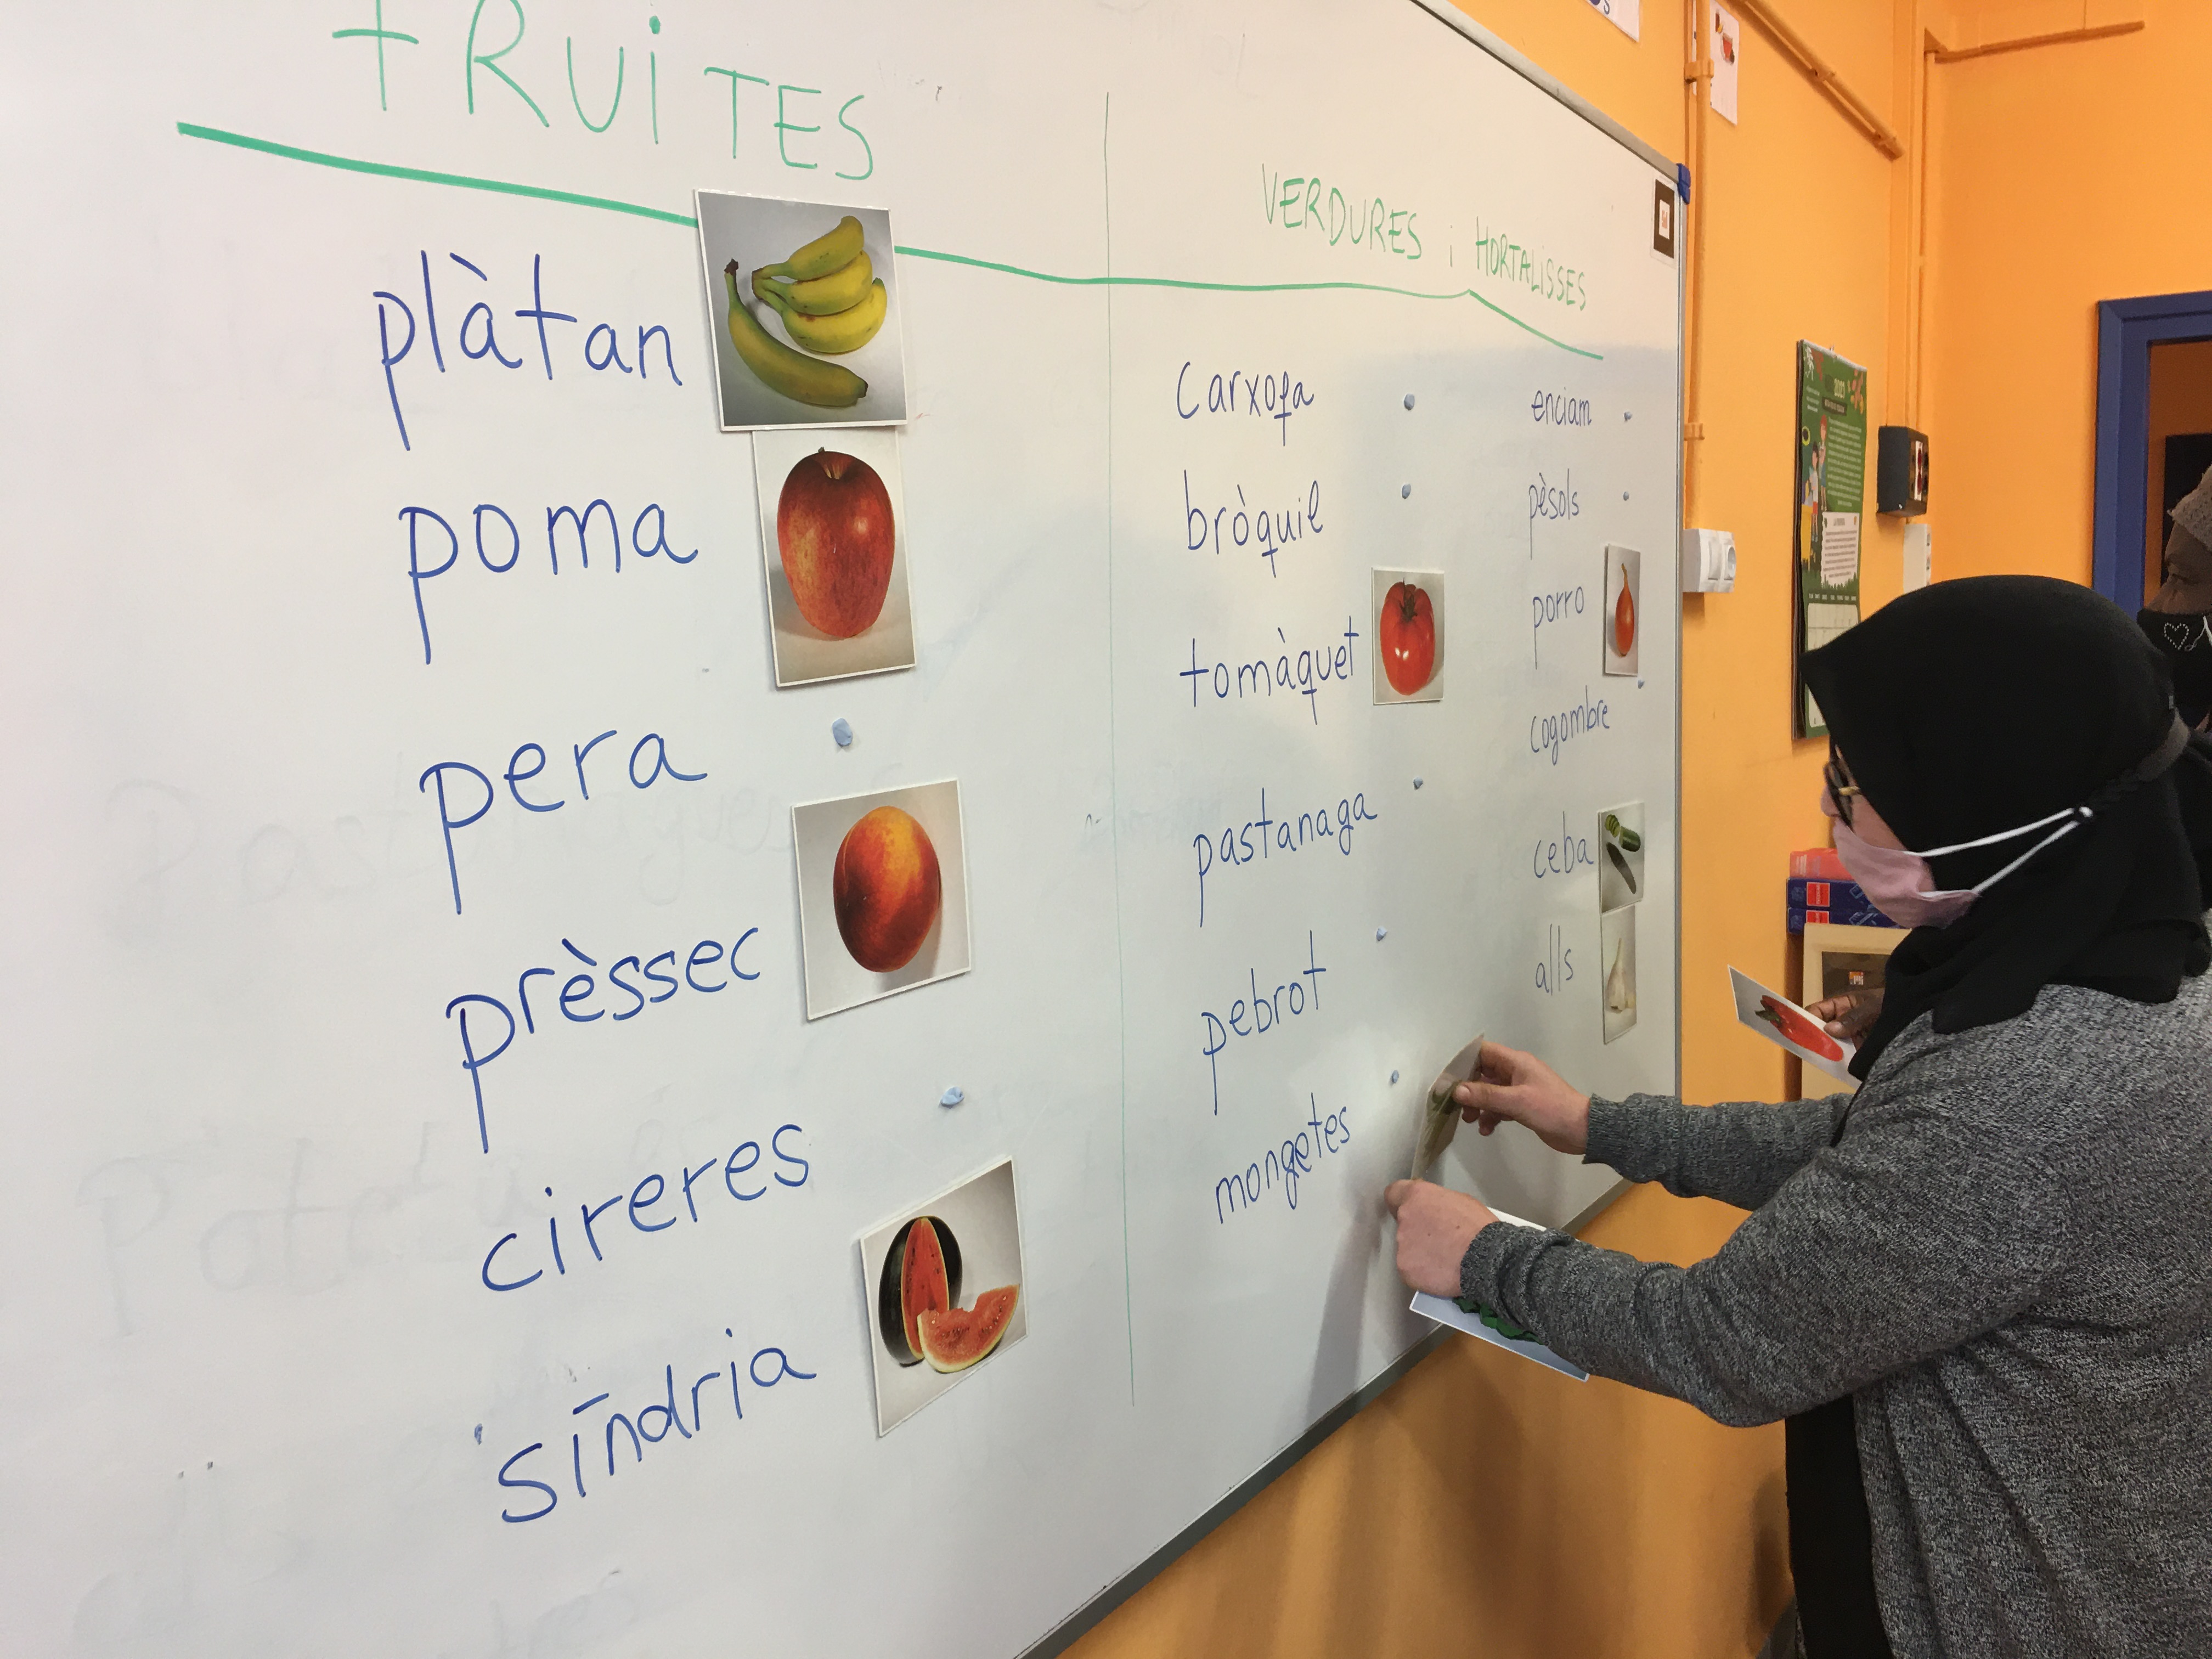 FRUiTES
plàtan
poma
pera
prèssec
cireres
síndria
VERDURES i HORTALiSSES
Carxofa
bròquil
tomàquet
pastanaga
pebrot
mongetes
enciam
pèsols
porro
cogombre
ceba
alls